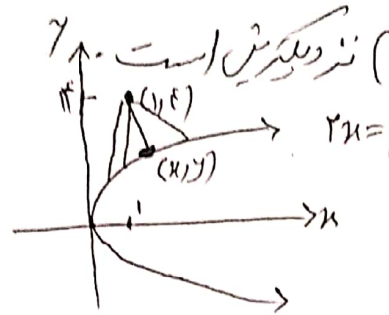 ) نزدیکترین است.
y
۴
(۱,۴)
۲x=
(x,y)
۱
x